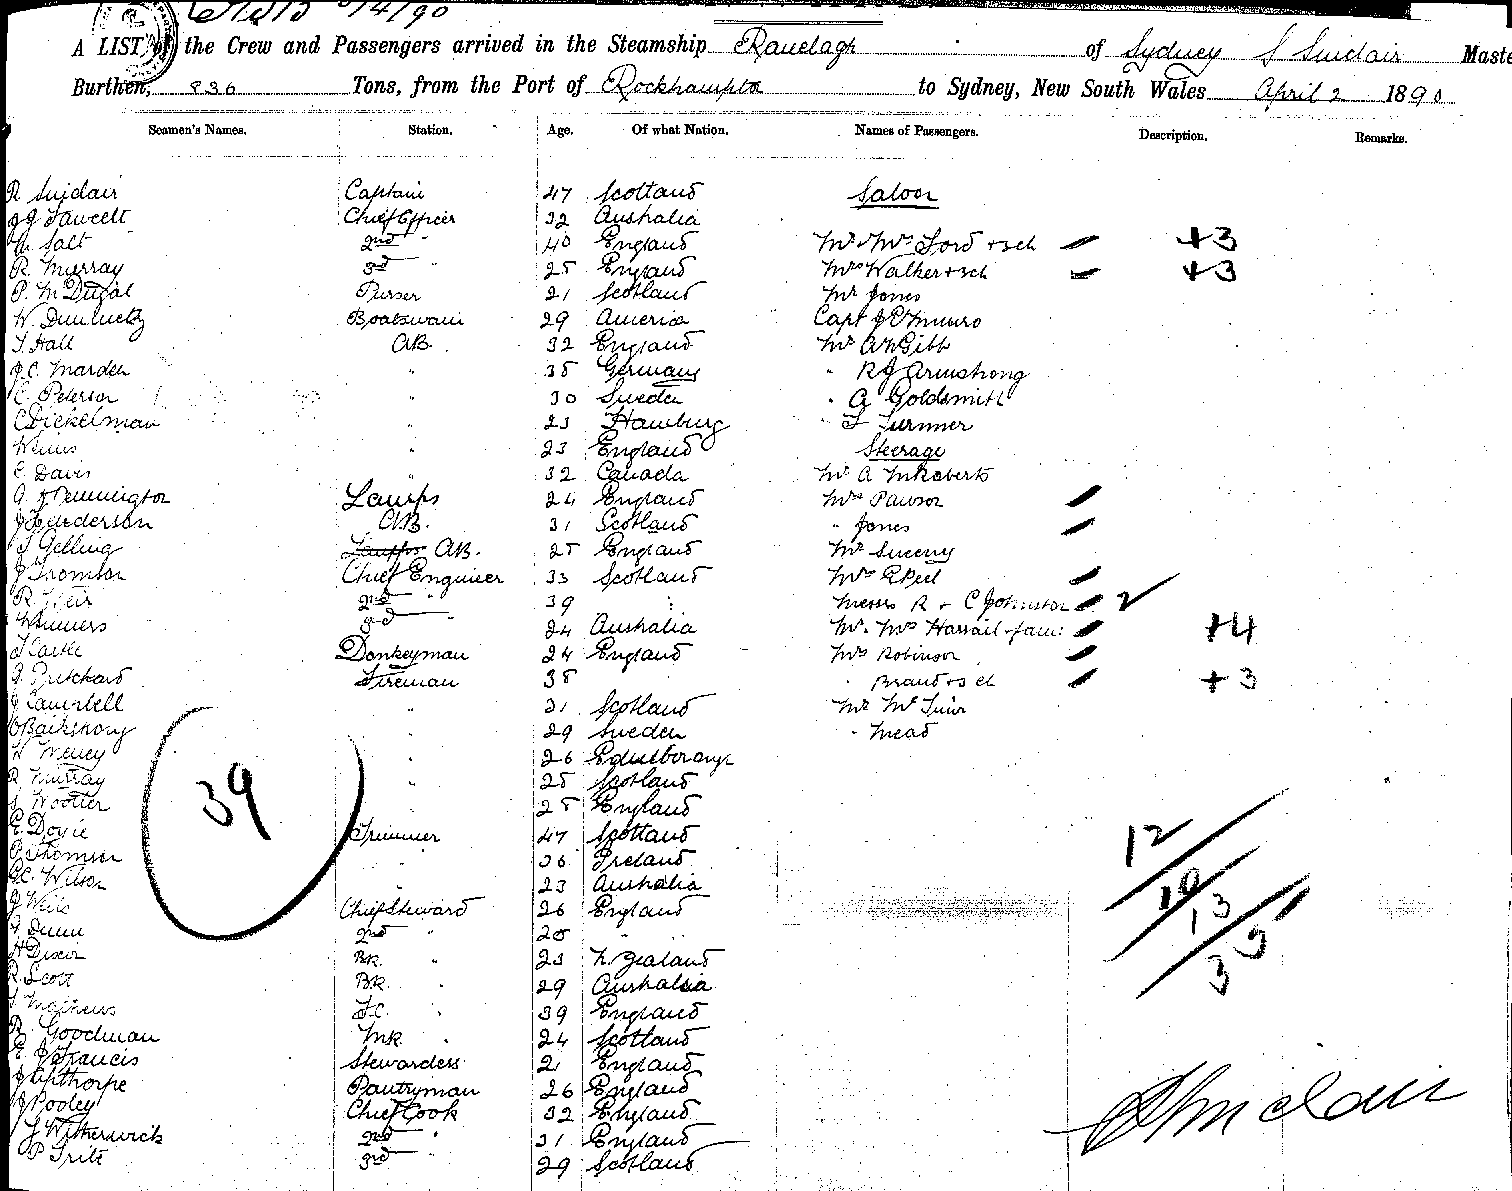 A LIST of the Crew and Passengers arrived in the Steamship Ranelagh of Sydney S Sinclair Maste
Burthen, 836 Tons, from the Port of Rockhampton to Sydney, New South Wales April 2 1890
Seamen's Names. Station. Age. Of what Nation. Names of Passengers. Description. Remarks.
R Sinclair Captain 47 Scotland Saloon
Fawcett Chief Officer 32 Australia
Salt 2nd " 40 England Mr & Mrs Ford + 3 ch +3
R. Murray 3rd " 25 England Mrs Walker + 3 ch +3
P. McDugal Purser 21 Scotland Mr Jones
W. Boatswain 29 America Capt Munro
Hall AB 32 England Mr Gibb
J.C. Marden " 35 Germany " R J Armstrong
C. Peterson " 30 Sweden " A Goldsmith
C Dickelman " 23 Hamburg " Turnner
" 23 England Steerage
C. Davis " 32 Canada Mr A McRoberts
Pennington Lamps 24 England Mrs Pawson
J Henderson AB. 31 Scotland " Jones
Gelling Lamps AB. 25 England Mr Sweeny
J Thomson Chief Engineer 33 Scotland Mrs Peel
R Weir 2nd " 39 " Messrs R + C Johnston 2
3rd " 24 Australia Mr. Mrs +4
Castle Donkeyman 24 England Mrs Robinson
Pritchard Fireman 35 " Brand + 3 ch +3
J Campbell " 31 Scotland Mr Muir
" 29 Sweden " Mead
" 26 Edinborough
R. Murray " 25 Scotland
39
Wooller " 25 England
E. Doyle Trimmer 47 Scotland
12
P Thomson " 36 Ireland
Wilson " 23 Australia
10
J Weils Chief Steward 26 England
13
Dunn 2nd " 20 "
H Dixon BK. " 23 N. Zealand
39
R. Scott BK. " 29 Australia
Mathews F.C. " 39 England
R. Goodman MR. 24 Scotland
E J Francis Stewardess 21 England
J Apthorpe Pantryman 26 England
J Pooley Chief Cook 32 England
J Witherwick 2nd " 31 England
P 3rd " 29 Scotland
S Sinclair